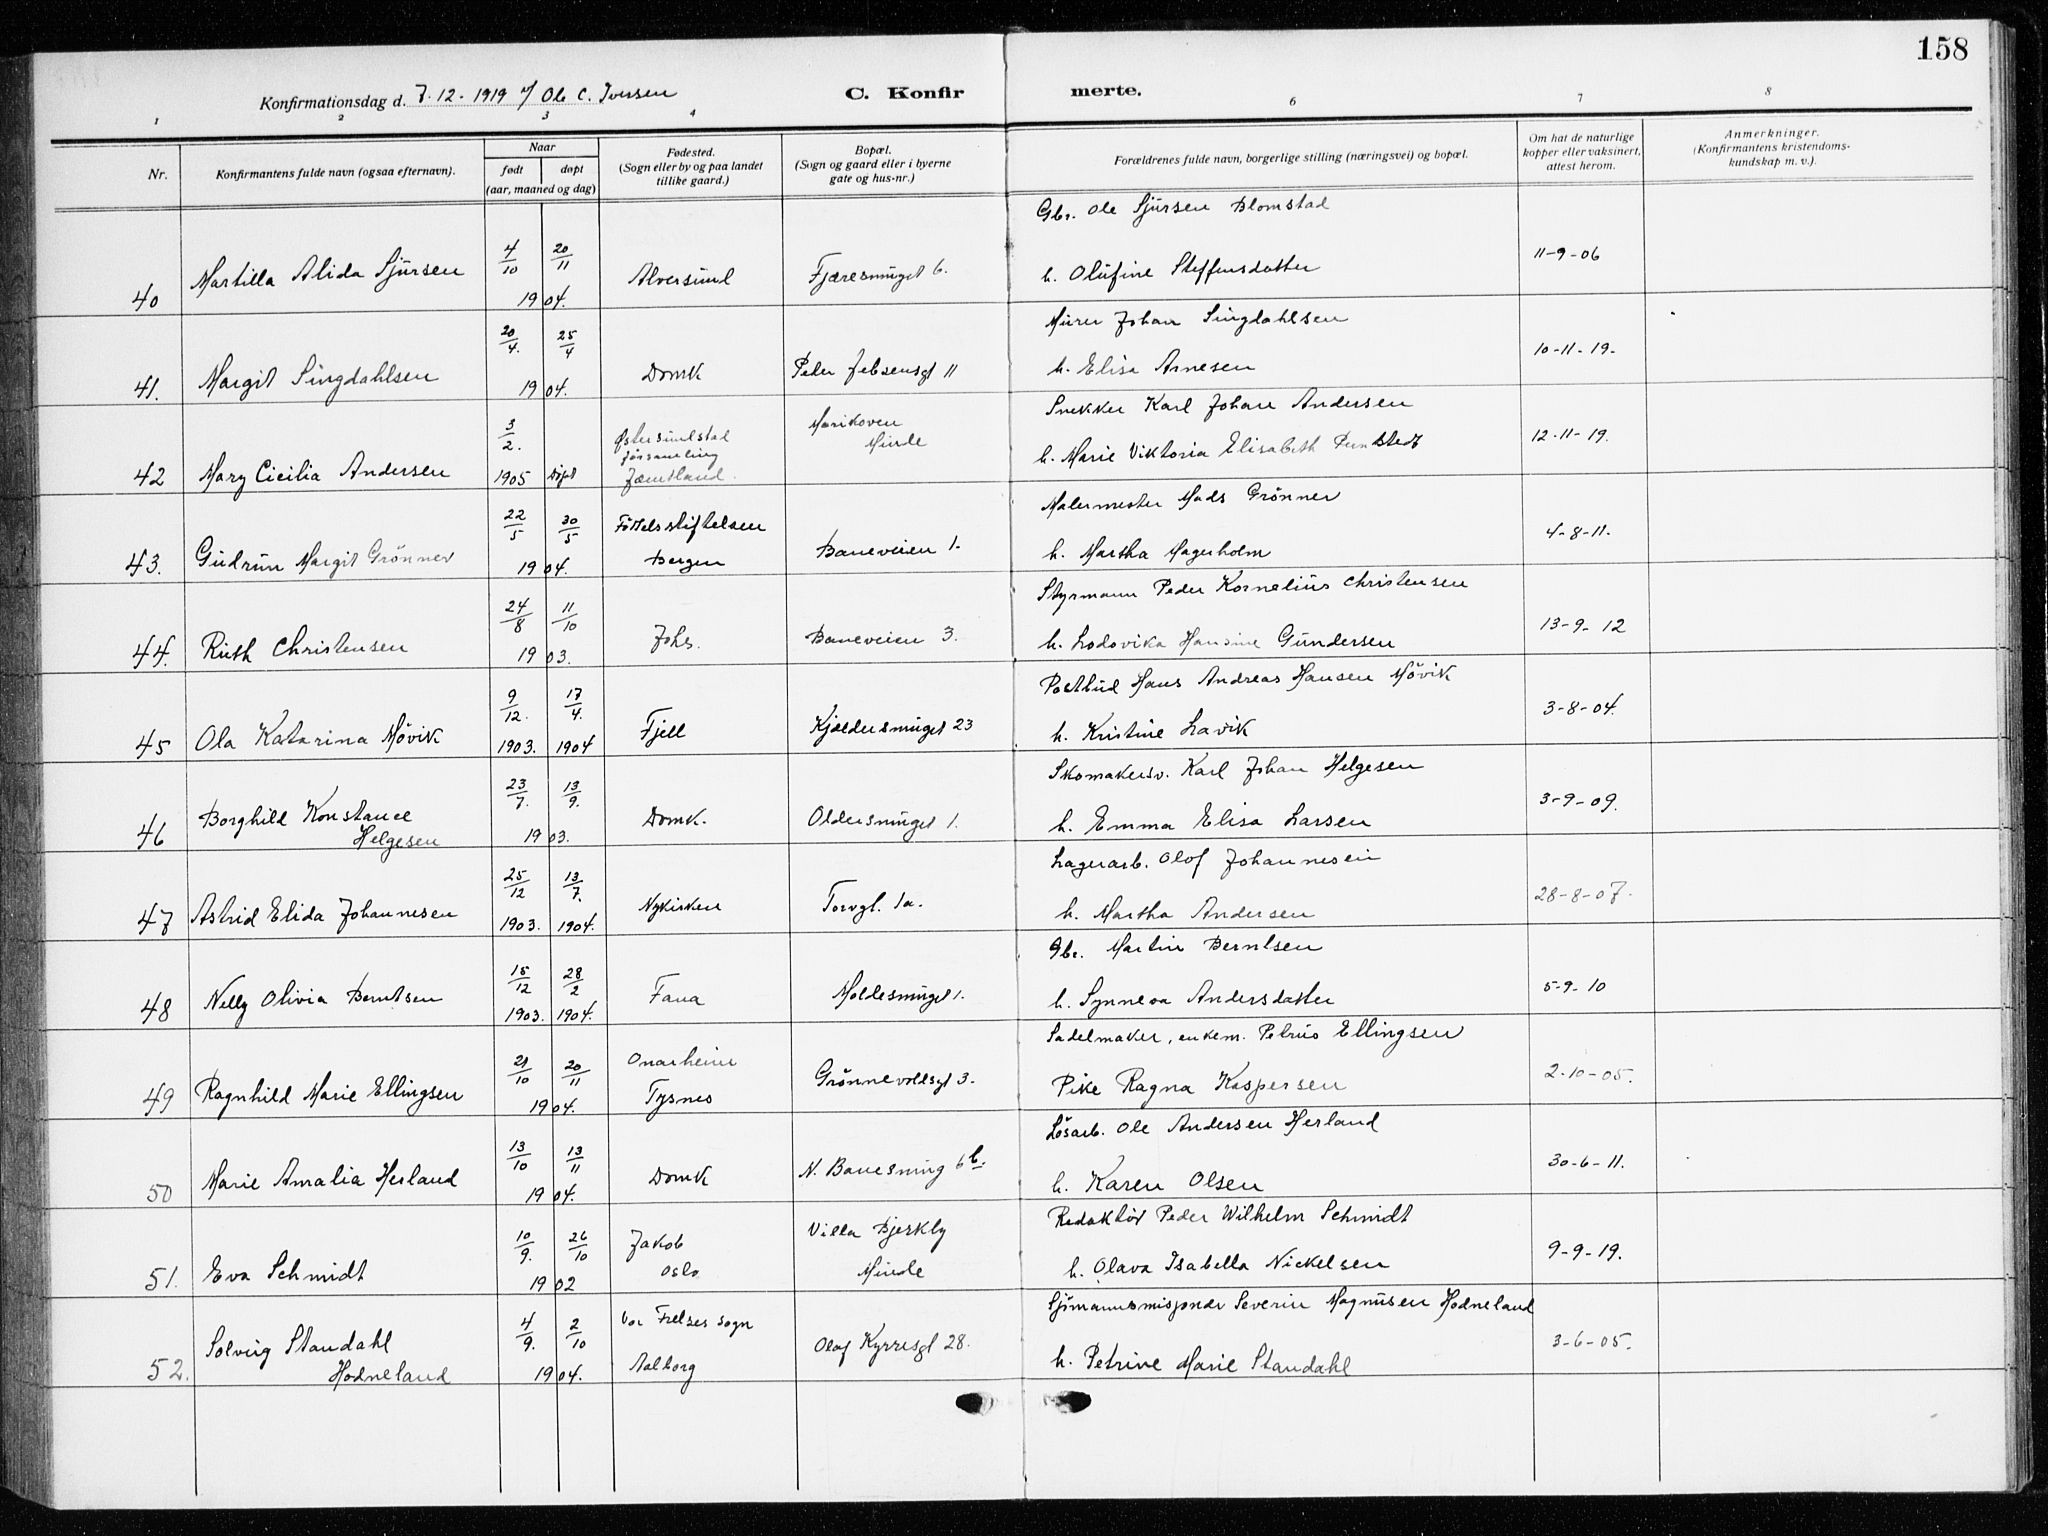 158
Konfirmationsdag d. 7.12-1919 v/ Ole C. Iversen C. Konfir merte.
1 2 3 4 6 7 8
Nr. Konfirmantens fulde navn (ogsaa efternavn). Naar født døpt (aar, maaned og dag) Fødested. (Sogn eller by og paa landet tillike gaard.) Bopæl. (Sogn og gaard eller i byerne gate og hus-nr.) Forældrenes fulde navn, borgerlige stilling (næringsvei) og bopæl. Om hat de naturlige kopper eller vaksinert, attest herom. Anmerkninger. (Konfirmantens kristendoms-kundskap m. v.).
Gbr. Ole Sjursen Blomstad
40 Martilla Alida Sjursen 4/10 20/11 1904. Alversund Fjæresmuget 6. h. Olufine Steffensdatter 11-9-06
Murer Johan Singdahlsen
41. Margit Singdahlsen 20/4. 25/4 1904. Domk Peder Jebsensgt 11 h. Elisa Arnesen 10-11-19.
Snekker Karl Johan Andersen
42 Mary Cicilia Andersen 3/2. 1905 døpt Østersundstad församling Jæmtland. Marikoven Minde h. Marie Viktoria Elisabeth 12-11-19.
Malermester Mads Grönner
43. Gudrun Margit Grönner 22/5 30/5 1904. Födselsstiftelsen Bergen Baneveien 1. h. Martha Magerholm 4-8-11.
Styrmann Peder Kornelius Christensen
44. Ruth Christensen 24/8 11/10 1903. Johs. Baneveien 3. h. Lodovika Hansine Gundersen 13-9-12
Postbud Hans Andreas Hansen Mövik
45 Ola Katarina Mövik 9/12. 1903. 17/4. 1904 Fjell Kjeldersmuget 23 h. Kristine Lavik 3-8-04.
Skomakersv. Karl Johan Helgesen
46 Borghild Konstance Helgesen 23/7. 13/9. 1903. Domk. Oldersmuget 1. h. Emma Elisa Larsen 3-9-09.
Lagerarb. Olof Johannesen
47 Astrid Elida Johannesen 25/12 1903. 13/7. 1904. Nykirken Torvgt. 1a. h. Martha Andersen 28-8-07.
Gbr. Martin Berntsen
48 Nelly Olivia Berntsen 15/12 1903. 28/2 1904. Fana Moldesmuget 1. h. Synneva Andersdatter 5-9-10
Sadelmaker, enkem. Petrus Ellingsen
49 Ragnhild Marie Ellingsen 21/10 20/11 1904. Onarheim Tysnes Grönnevoldsgt 3. Pike Ragna Kaspersen 2-10-05.
Lösarb. Ole Andersen Herland
50 Marie Amalia Herland 13/10 13/11 1904. Domk N. 6b. h. Karen Olsen 30-6-11.
Redaktör Peder Wilhelm Schmidt
51. Eva Schmidt 10/9. 26/10 1902 Jakob Oslo Villa Bjerkly Minde h. Olava Isabella Nickelsen 9-9-19.
Sjömannsmisjonær Severin Magnusen Hodneland
52. Solveig Standahl Hodneland 4/9. 2/10 1904. Vor Frelses sogn Aalborg Olaf Kyrresgt 28. h. Petrine Marie Standahl 3-6-05.